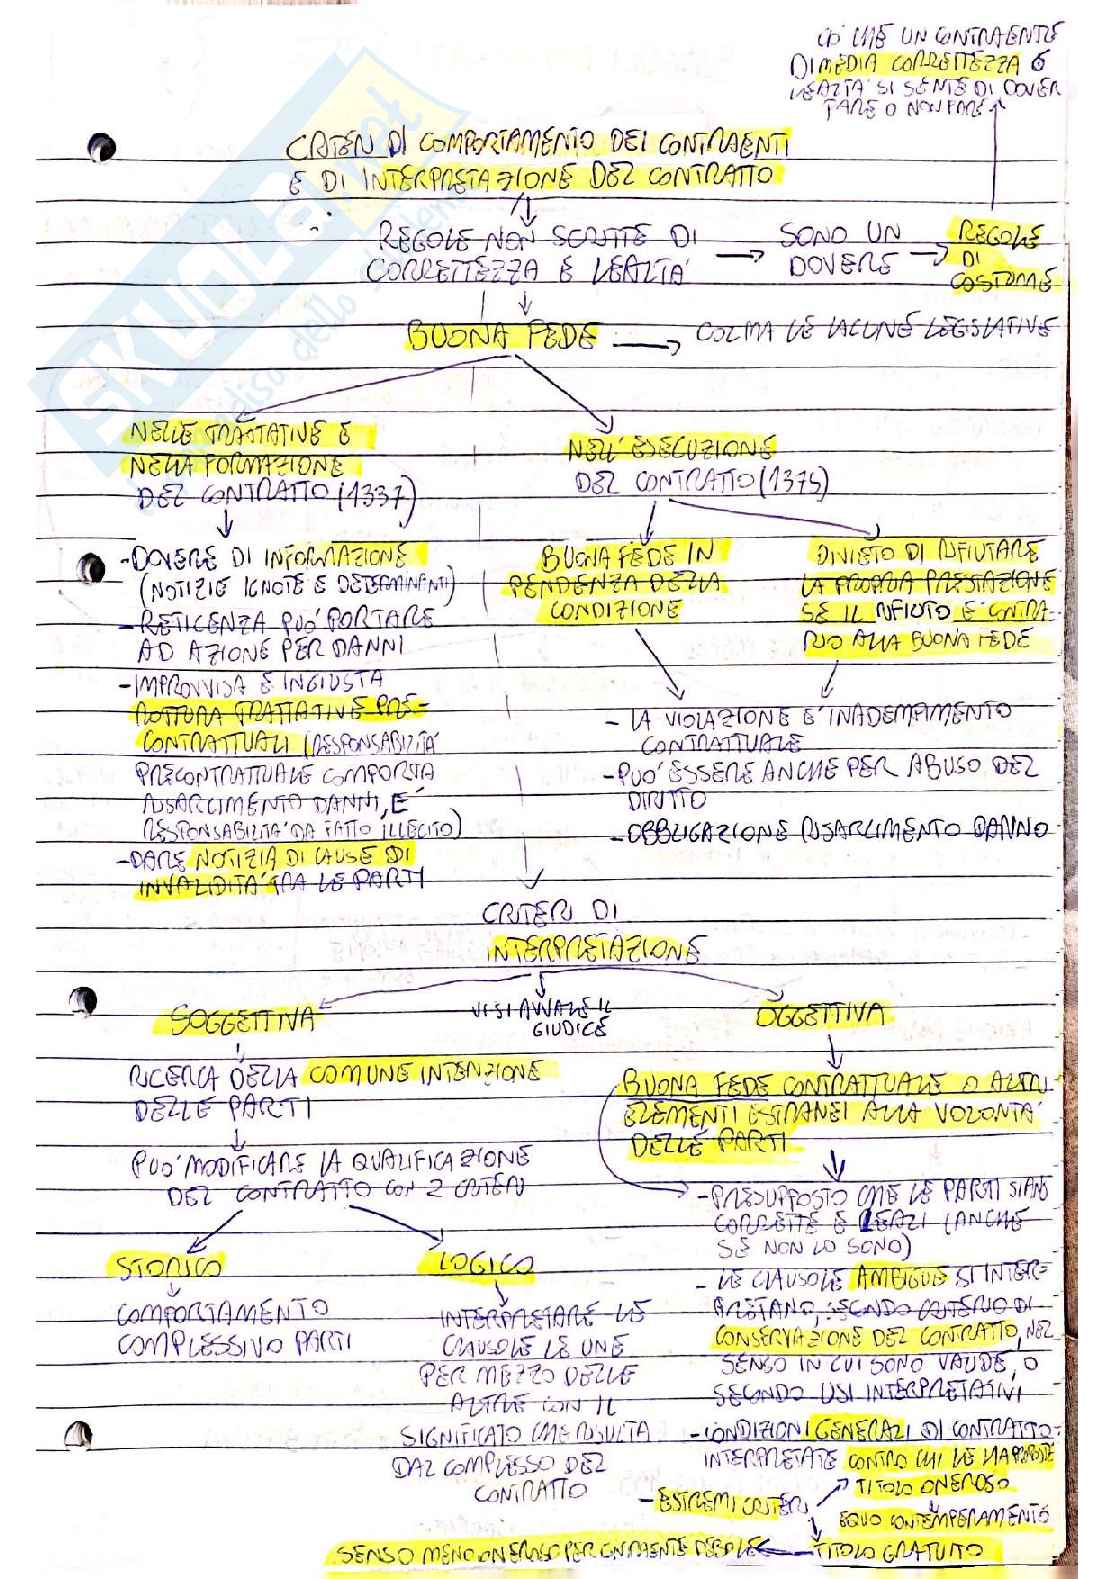 CIÒ CHE UN CONTRAENTE
DI MEDIA CORRETTEZZA E
LEALTÀ SI SENTE DI DOVER
FARE O NON FARE
CRITERI DI COMPORTAMENTO DEI CONTRAENTI
E DI INTERPRETAZIONE DEL CONTRATTO
REGOLE NON SCRITTE DI
CORRETTEZZA E LEALTÀ
SONO UN
DOVERE
REGOLE
DI
COSTUME
BUONA FEDE
COLMA LE LACUNE LEGISLATIVE
NELLE TRATTATIVE E
NELLA FORMAZIONE
DEL CONTRATTO (1337)
NELL'ESECUZIONE
DEL CONTRATTO (1375)
-DOVERE DI INFORMAZIONE
(NOTIZIE IGNOTE E DETERMINANTI)
- RETICENZA PUÒ PORTARE
AD AZIONE PER DANNI
-IMPROVVISA E INGIUSTA
ROTTURA TRATTATIVE PRE-
CONTRATTUALI (RESPONSABILITÀ
PRECONTRATTUALE COMPORTA
RISARCIMENTO DANNI, E'
RESPONSABILITÀ DA FATTO ILLECITO)
-DARE NOTIZIA DI CAUSE DI
INVALIDITÀ TRA LE PARTI
BUONA FEDE IN
PENDENZA DELLA
CONDIZIONE
DIVIETO DI RIFIUTARE
LA PROPRIA PRESTAZIONE
SE IL RIFIUTO È CONTRA
RIO ALLA BUONA FEDE
- LA VIOLAZIONE E' INADEMPIMENTO
CONTRATTUALE
-PUO' ESSERE ANCHE PER ABUSO DEL
DIRITTO
-OBBLIGAZIONE RISARCIMENTO DANNO
CRITERI DI
INTERPRETAZIONE
SOGGETTIVA
VI SI AVVALE IL
GIUDICE
OGGETTIVA
RICERCA DELLA COMUNE INTENZIONE
DELLE PARTI
PUO' MODIFICARE LA QUALIFICAZIONE
DEL CONTRATTO CON 2 CRITERI
STORICO
COMPORTAMENTO
COMPLESSIVO PARTI
LOGICO
INTERPRETARE LE
CLAUSOLE LE UNE
PER MEZZO DELLE
ALTRE CON IL
SIGNIFICATO CHE RISULTA
DAL COMPLESSO DEL
CONTRATTO
BUONA FEDE CONTRATTUALE O ALTRI
ELEMENTI ESTRANEI ALLA VOLONTÀ
DELLE PARTI
-PRESUPPOSTO CHE LE PARTI SIANO
CORRETTE E LEALI (ANCHE
SE NON LO SONO)
- LE CLAUSOLE AMBIGUE SI INTER=
PRETANO, SECONDO CRITERIO DI
CONSERVAZIONE DEL CONTRATTO, NEL
SENSO IN CUI SONO VALIDE, O
SECONDO USI INTERPRETATIVI
-CONDIZIONI GENERALI DI CONTRATTO
INTERPRETATE CONTRO CHI LE HA PROPOSTE
-ESTREMI CRITERI
TITOLO ONEROSO
EQUO CONTEMPERAMENTO
TITOLO GRATUITO
SENSO MENO ONEROSO PER CONTRAENTE DEBOLE
SKUOLA.net